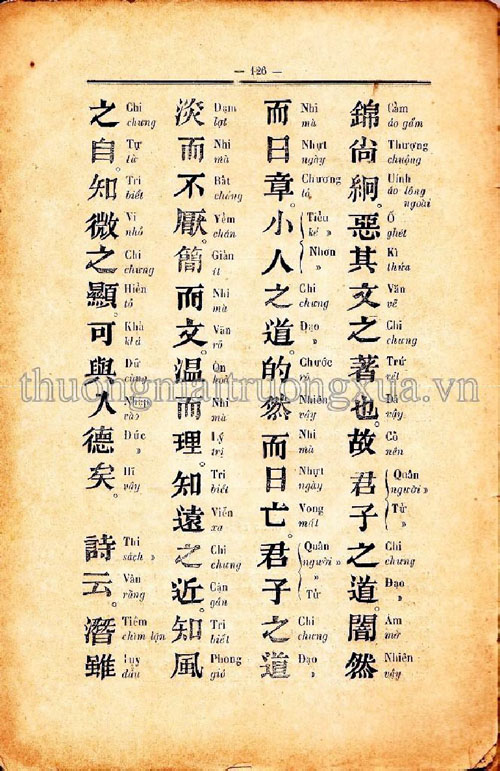 — 126 —
錦尙絅。惡其文之著也。故君子之道。闇然
Cẩm
áo gấm
Thượng
chuộng
Uính
áo lông
ngoài
Ố
ghét
Kì
thửa
Văn
vẽ
Chi
chưng
Trứ
Dã
vậy
Cố
nên
Quân
người »
Tử »
Chi
chưng
Đạo
»
Ám
mờ
Nhiên
vậy
而日章。小人之道。的然而日亡。君子之道
Nhi
mà
Nhựt
ngày
Chương
tỏ
Tiểu
kẻ »
Nhơn
»
Chi
chưng
Đạo
»
Chước
Nhiên
vậy
Nhi
mà
Nhựt
ngày
Vong
mất
Quân
người »
Tử
Chi
chưng
Đạo
»
淡而不厭。簡而文。温而理。知遠之近。知風
Đạm
lợt
Nhi
mà
Bất
chẳng
Yếm
chán
Giản
ít
Nhi
mà
Văn
rõ
Ôn
Nhi
mà
Lý
trị
Tri
biết
Viễn
xa
Chi
chưng
Cận
gần
Tri
biết
Phong
gió
之自。知微之顯。可與入德矣。詩云。潛雖
Chi
chưng
Tự
từ
Tri
biết
Vi
nhỏ
Chi
chưng
Hiển
tỏ
Khả
khá
Dữ
cùng
Nhập
vào
Đức
»
Hĩ
vậy
Thi
sách »
Vân
rằng
Tiềm
chìm lặn
Tuy
dầu
thuongmaitruongxua.vn